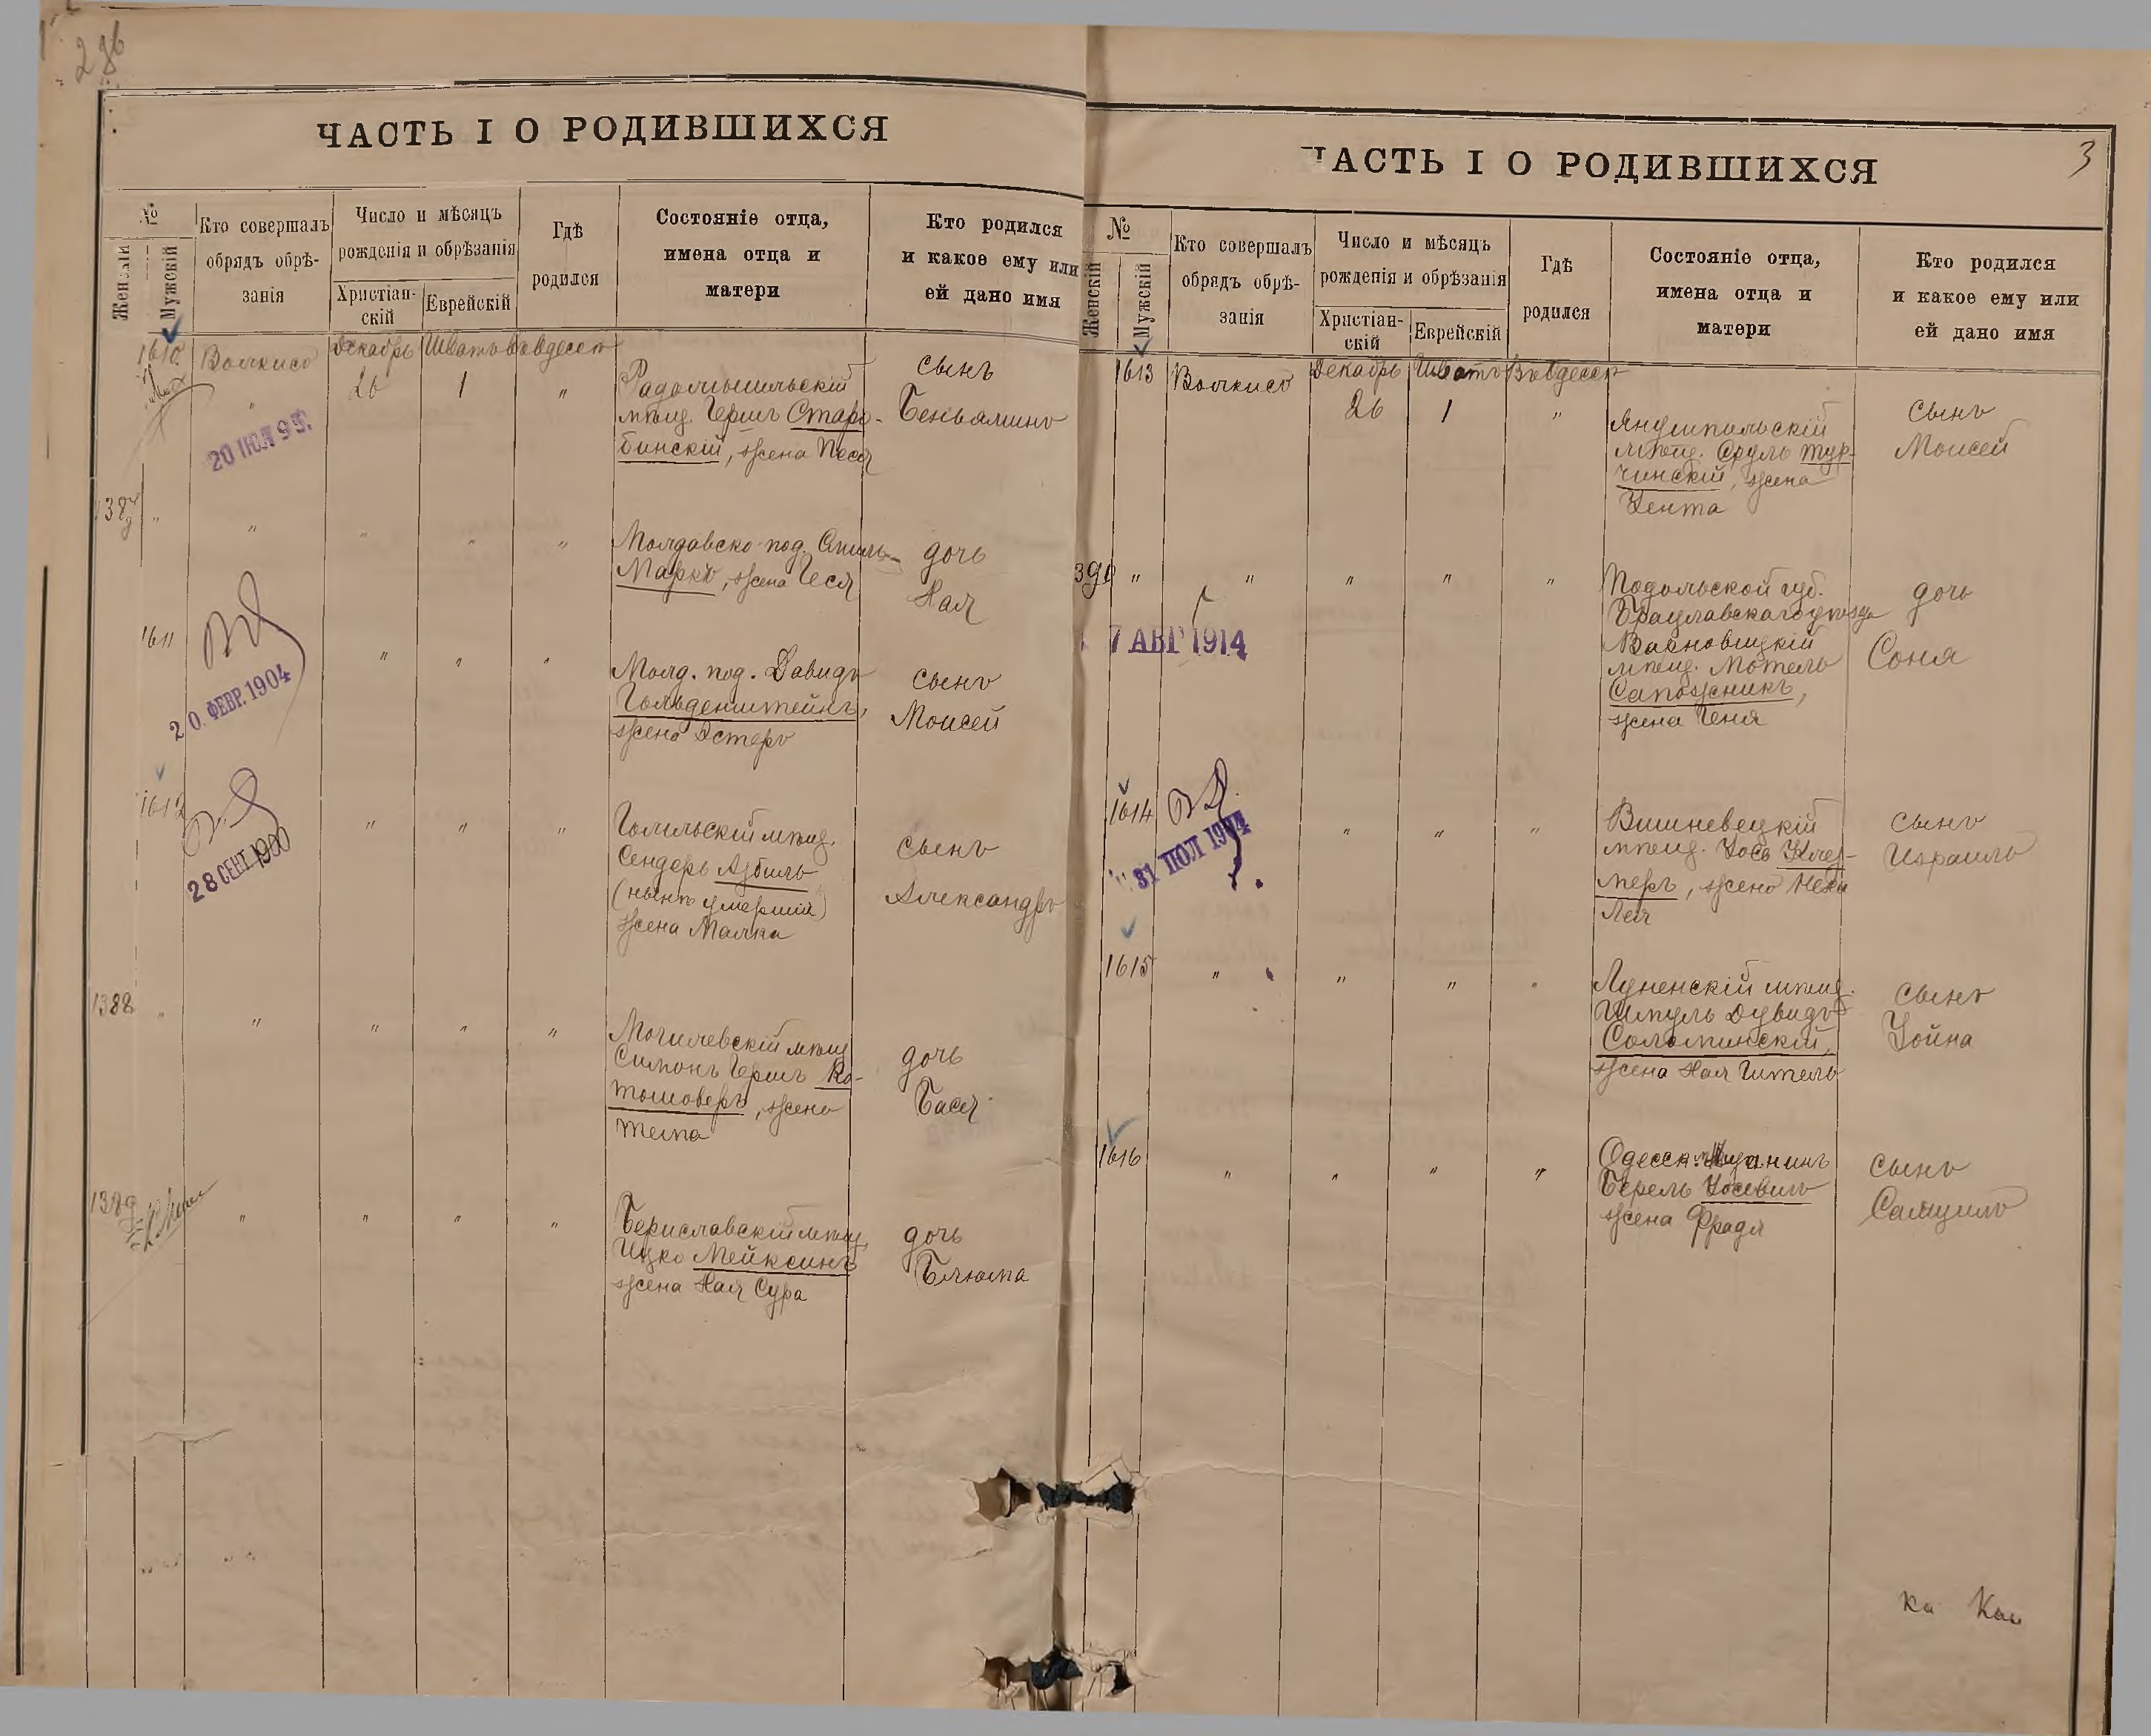 286
ЧАСТЬ I О РОДИВШИХСЯ
№
Женскій
Мужскій
Кто совершалъ
обрядъ обрѣ-
занія
Число и мѣсяцъ
рожденія и обрѣзанія
Христіан-
скій
Еврейскій
Гдѣ
родился
Состояніе отца,
имена отца и
матери
Кто родился
и какое ему или
ей дано имя
1610 Волкисъ Декабрь Шватъ Въ Одессѣ
26 1 "
20 ІЮЛ 95.
Радомысльскій
мѣщ. Гершъ Старо-
бинскій, жена Песя
сынъ
Беньяминъ
1387 " " " " "
Молдавско-под. Шмиль
Марко, жена Геся
дочь
Хая
1611 " " "
20. ФЕВР. 1904
Молд. под. Давидъ
Гольденштейнъ,
жена Эстеръ
сынъ
Моисей
1612 " " "
28 СЕНТ. 1900
мѣщ.
Сендеръ
(нынѣ умершій)
жена Малка
сынъ
Александръ
1388 " " " " "
Могилевскій мѣщ.
Симонъ Гершъ Ко-
тошоверъ, жена
Тема
дочь
Бася
1389 " " " "
Бериславскій мѣщ.
Ицко Мейксинъ
жена Хая Сура
дочь
Блюма
3
ЧАСТЬ I О РОДИВШИХСЯ
№
Женскій
Мужскій
Кто совершалъ
обрядъ обрѣ-
занія
Число и мѣсяцъ
рожденія и обрѣзанія
Христіан-
скій
Еврейскій
Гдѣ
родился
Состояніе отца,
имена отца и
матери
Кто родился
и какое ему или
ей дано имя
1613 Волкисъ Декабрь Шватъ Въ Одессѣ
26 1 "
Янушпольскій
мѣщ. Сруль Тур-
чинскій, жена
Хента
сынъ
Моисей
390 " " " " "
7 АВГ 1914
Подольской губ.
Брацлавскаго уѣзда
мѣщ. Мотель
Сапожникъ,
жена Геня
дочь
Соня
1614 " " "
31 ІЮЛ 1904
Вишневецкій
мѣщ. Іось
жена Неха
Лея
сынъ
Израиль
1615 " " " "
Луненскій мѣщ.
Шмуль Дувидъ
Соломинскій,
жена Хая Гитель
сынъ
Хойна
1616 " " " "
Одесск. мѣщанинъ
Берель
жена Фрадя
сынъ
Самуилъ